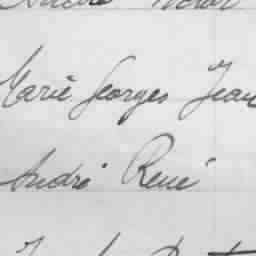 Marie Georges Jean
André René